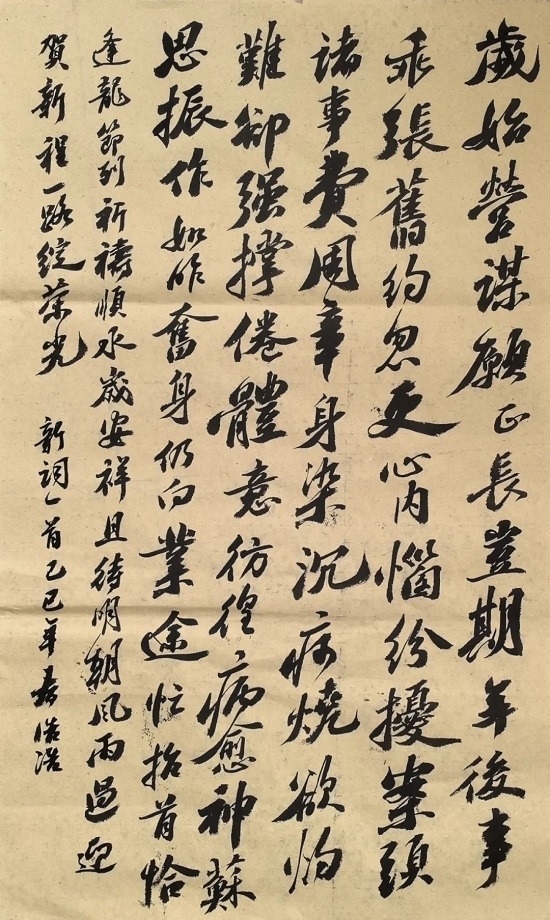 歲始營謀願正長豈期年後事
乖張舊約忽更心內惱紛擾案頭
諸事費周章身染沉疴燒欲灼
難卻強撐倦體意彷徨病愈神蘇
思振作如昨奮身仍向業途忙抬首恰
逢龍節到祈禱順永歲安祥且待明朝風雨過迎
賀新程一路綻榮光 新詞一首乙巳年浩